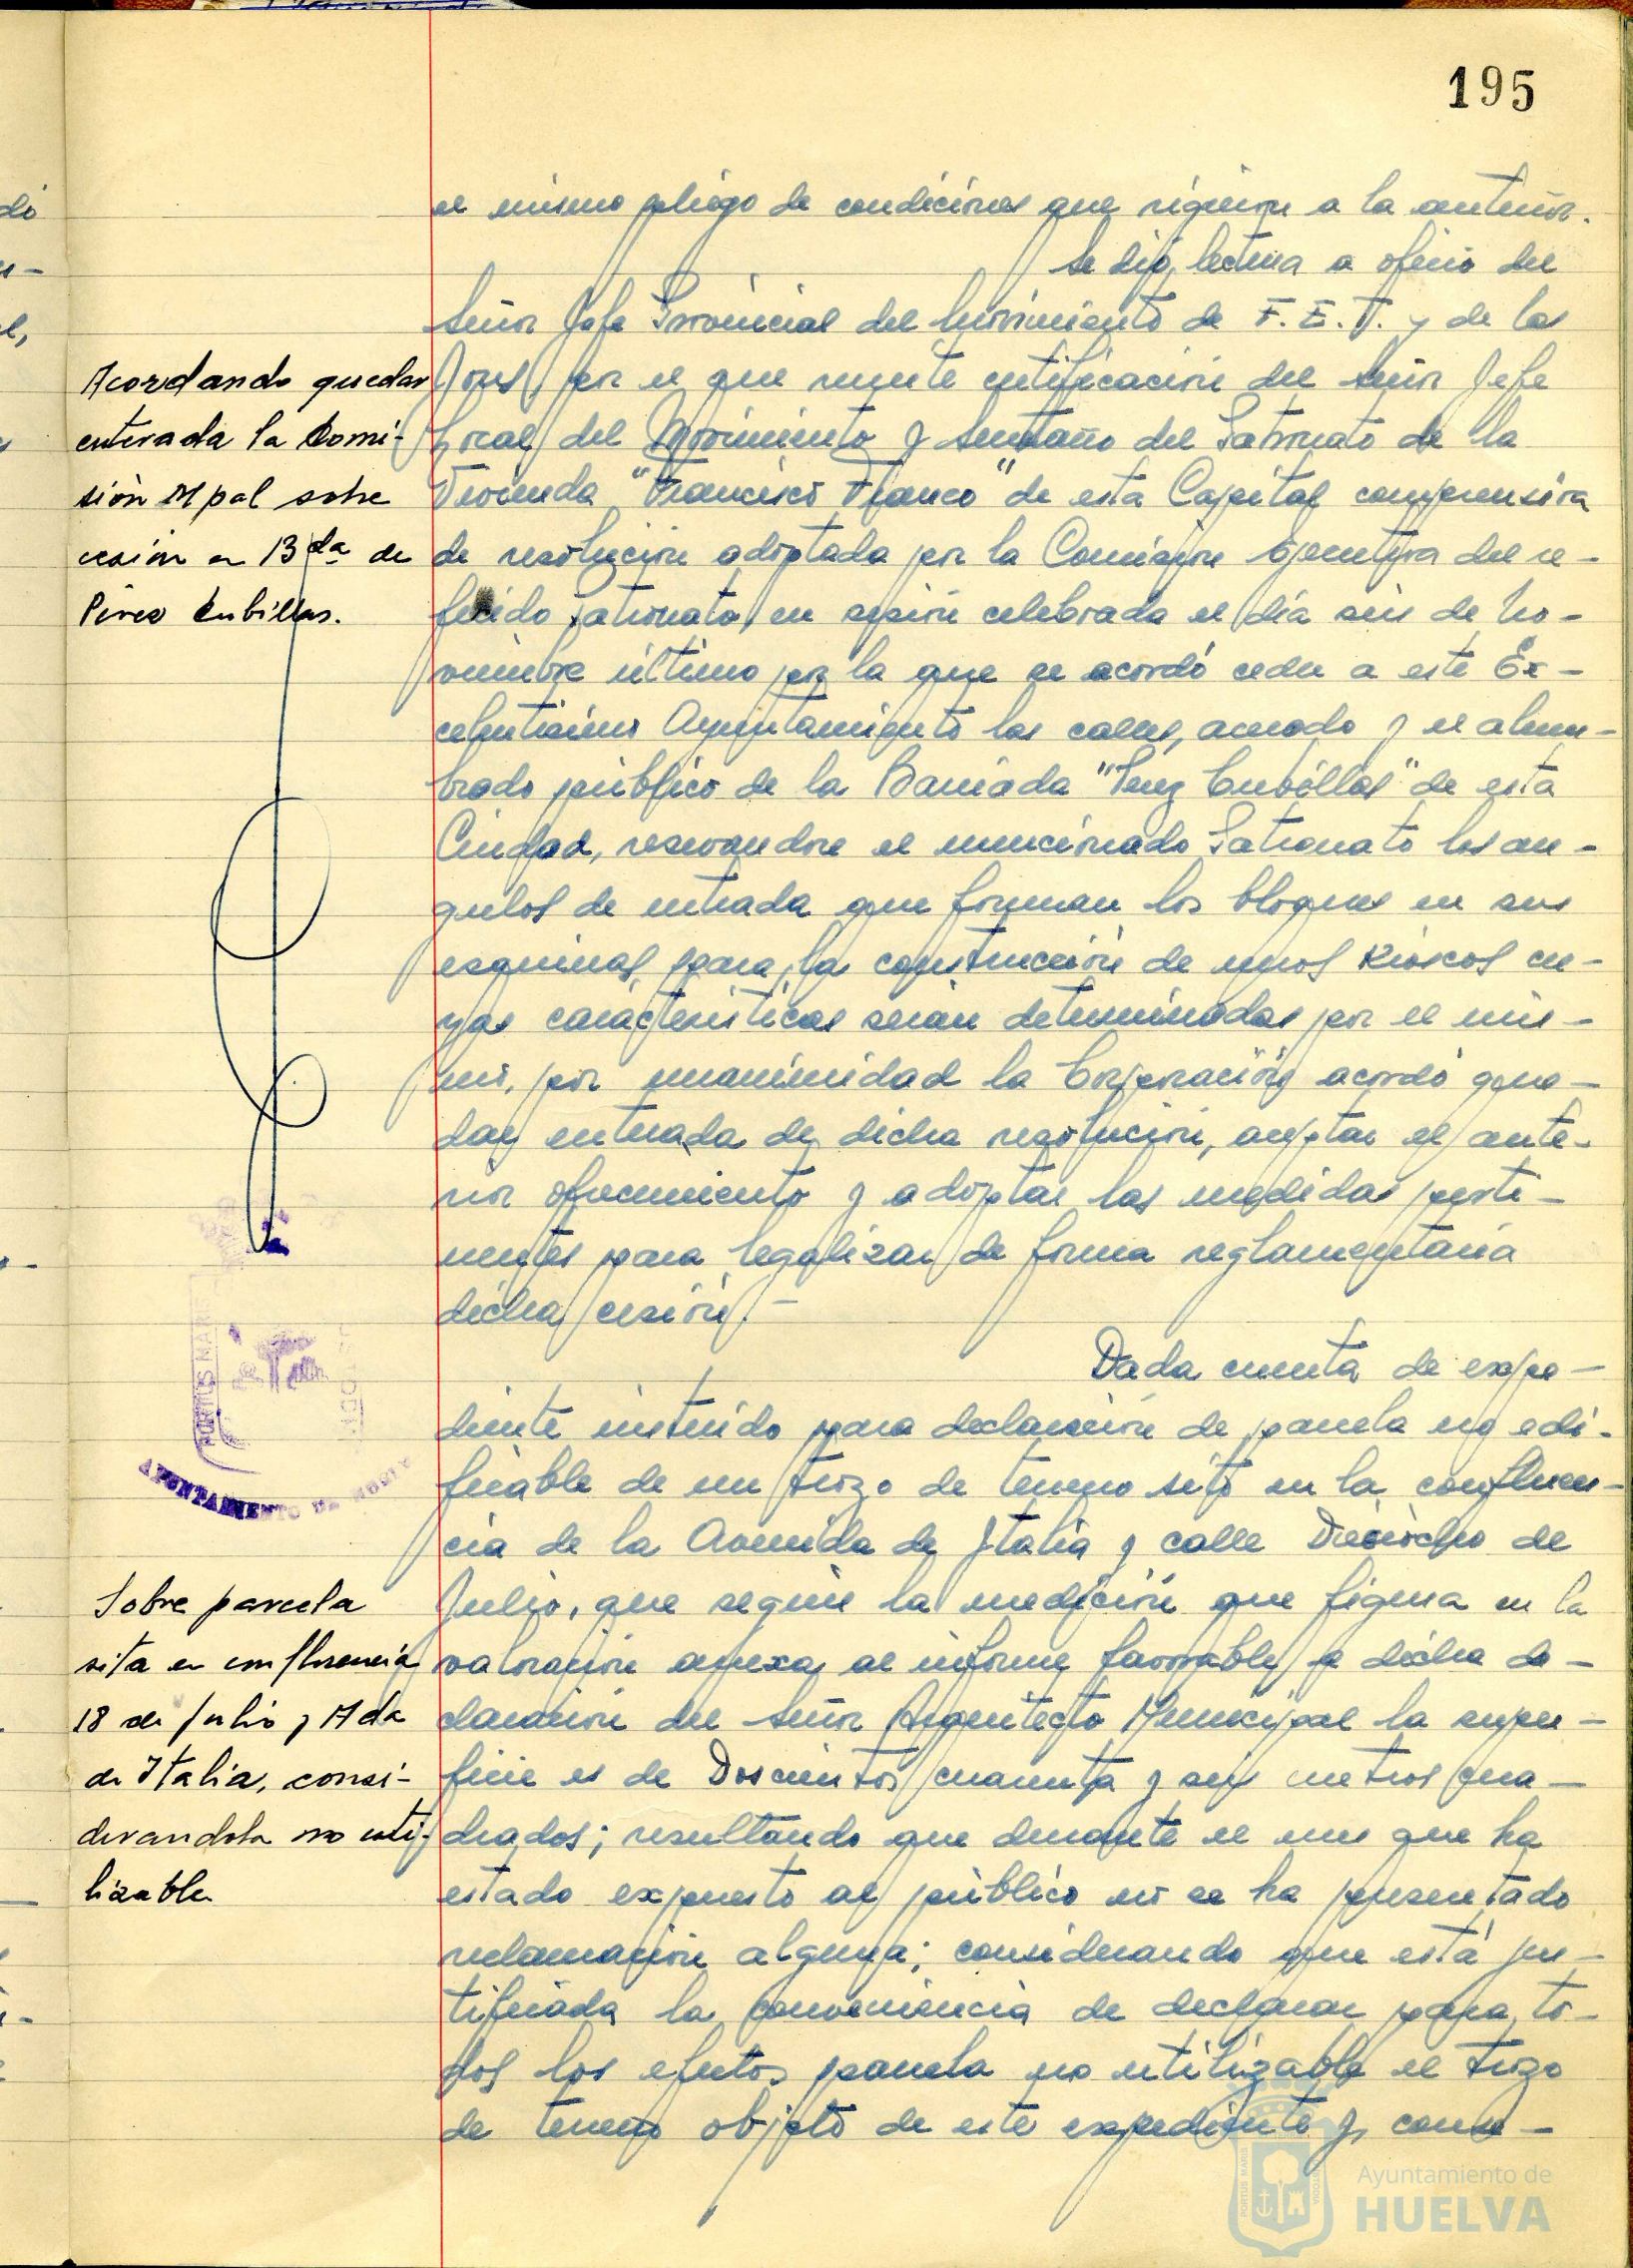 195
el mismo pliego de condiciones que rigieron a la anterior.
Se dió lectura a oficio del
Señor Jefe Provincial del Movimiento de F.E.T. y de las
Jons, por el que remite certificación del Señor Jefe
Local del Movimiento y Secretario del Patronato de la
Vivienda "Francisco Franco" de esta Capital comprensiva
de resolución adoptada por la Comisión Ejecutiva del re-
ferido patronato, en sesión celebrada el día seis de No-
viembre último por la que se acordó ceder a este Ex-
celentísimo Ayuntamiento las calles, acerado y el alum-
brado público de la Barriada "Pérez Cubillas" de esta
Ciudad, reservandose el mencionado Patronato los an-
gulos de entrada que forman los bloques en sus
esquinas, para la construcción de unos Kioscos cu-
yas características serían determinadas por el mis-
mo, por unanimidad la Corporación acordó que-
dar enterada de dicha resolución, aceptar el ante-
rior ofrecimiento y adoptar las medidas perti-
nentes para legalizar de forma reglamentaria
dicha cesión.-
Dada cuenta de expe-
diente instruido para declaración de parcela no edi-
ficable de un trozo de terreno sito en la confluen-
cia de la Avenida de Italia y calle Dieciocho de
Julio, que según la medición que figura en la
valoración anexa al informe favorable a dicha de-
claración del Señor Arquitecto Municipal la super-
ficie es de Doscientos cuarenta y seis metros cua-
drados; resultando que durante el mes que ha
estado expuesto al público no se ha presentado
reclamación alguna; considerando que está jus-
tificada la conveniencia de declarar para to-
dos los efectos parcela no utilizable el trozo
de terreno objeto de este expediente y, como-
Acordando quedar
enterada la Comi-
sión Mpal sobre
cesión en Bda de
Pérez Cubillas.
PORTUS MARIS
AYUNTAMIENTO DE HUELVA
Sobre parcela
sita en confluencia
18 de Julio y Avda
de Italia, consi-
derandola no uti-
lizable
Ayuntamiento de
HUELVA